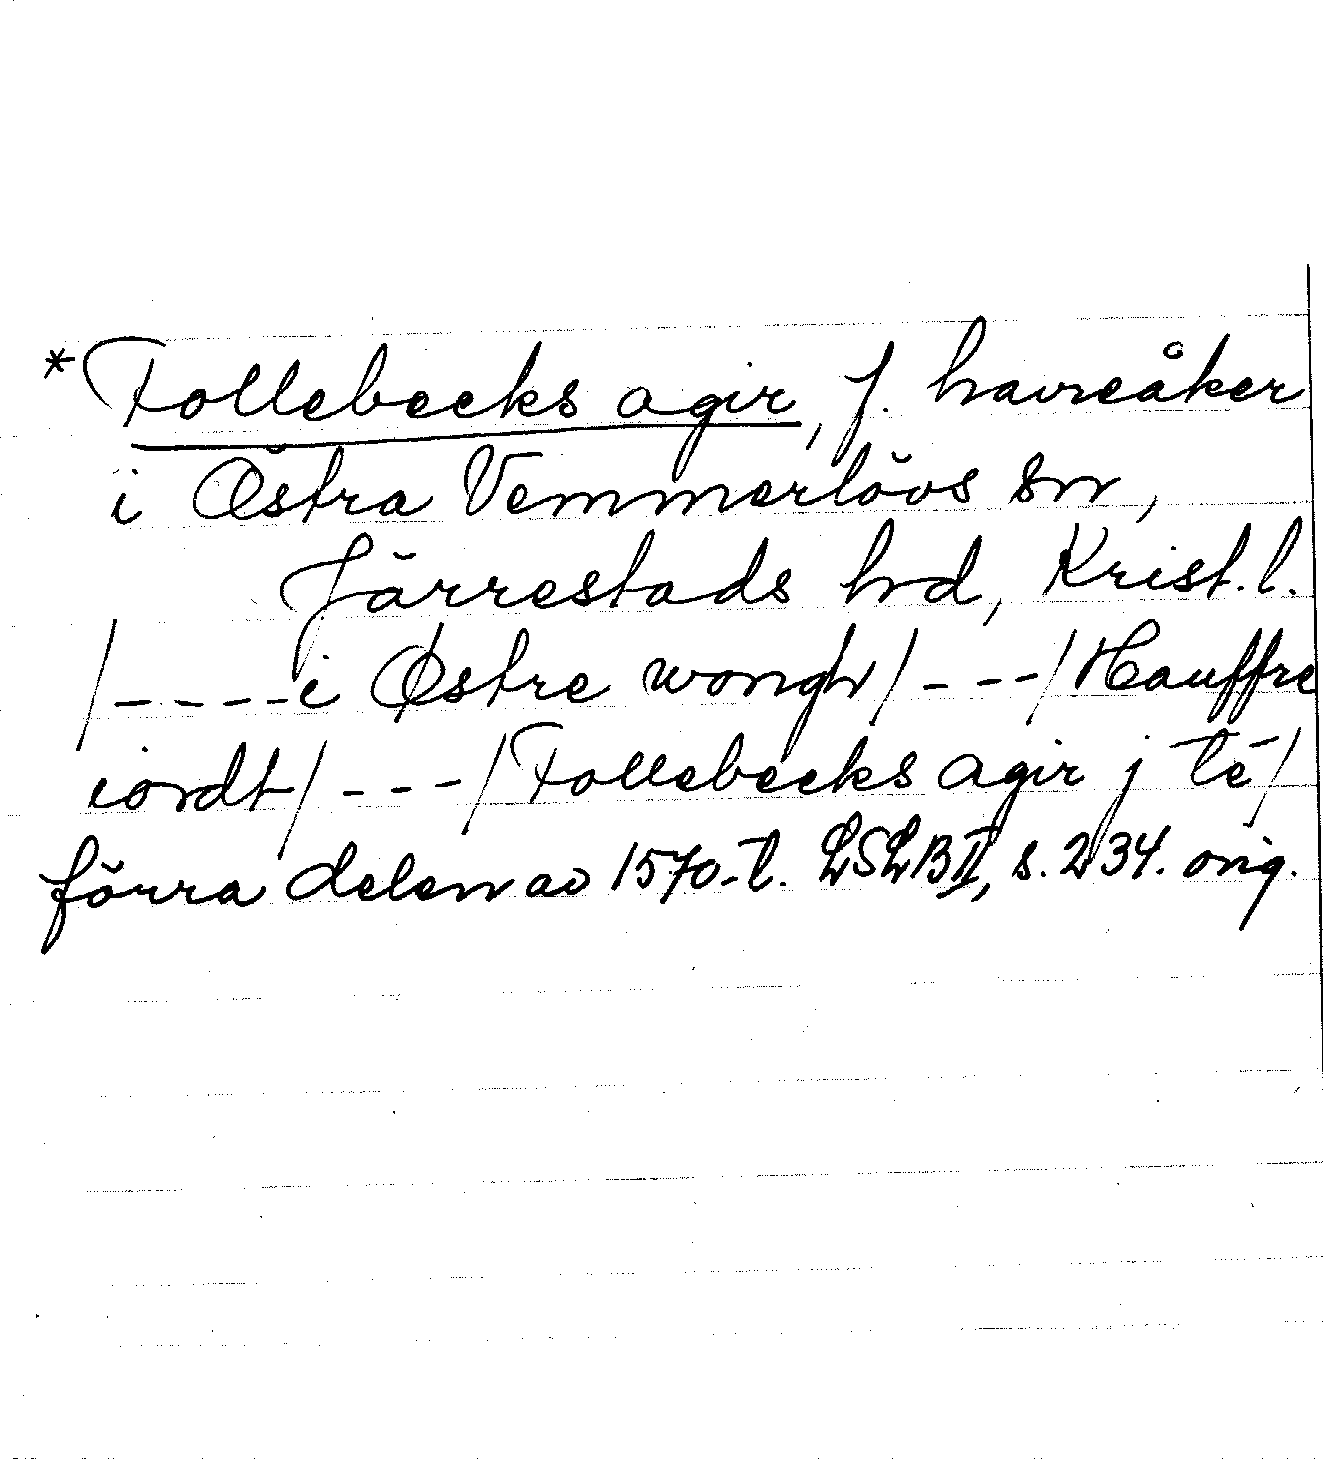 *Follebecks agir, f. havreåker
i Östra Vemmerlövs sn,
Järrestads hd, Krist. l.
/----i Østre wongh/---/Hauffre
iordt/---/Follebecks agir j té/
förra delen av 1570-t. LSLB II, s. 234. orig.